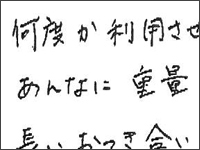 何度か利用させ
あんなに重量
長いおつき合い